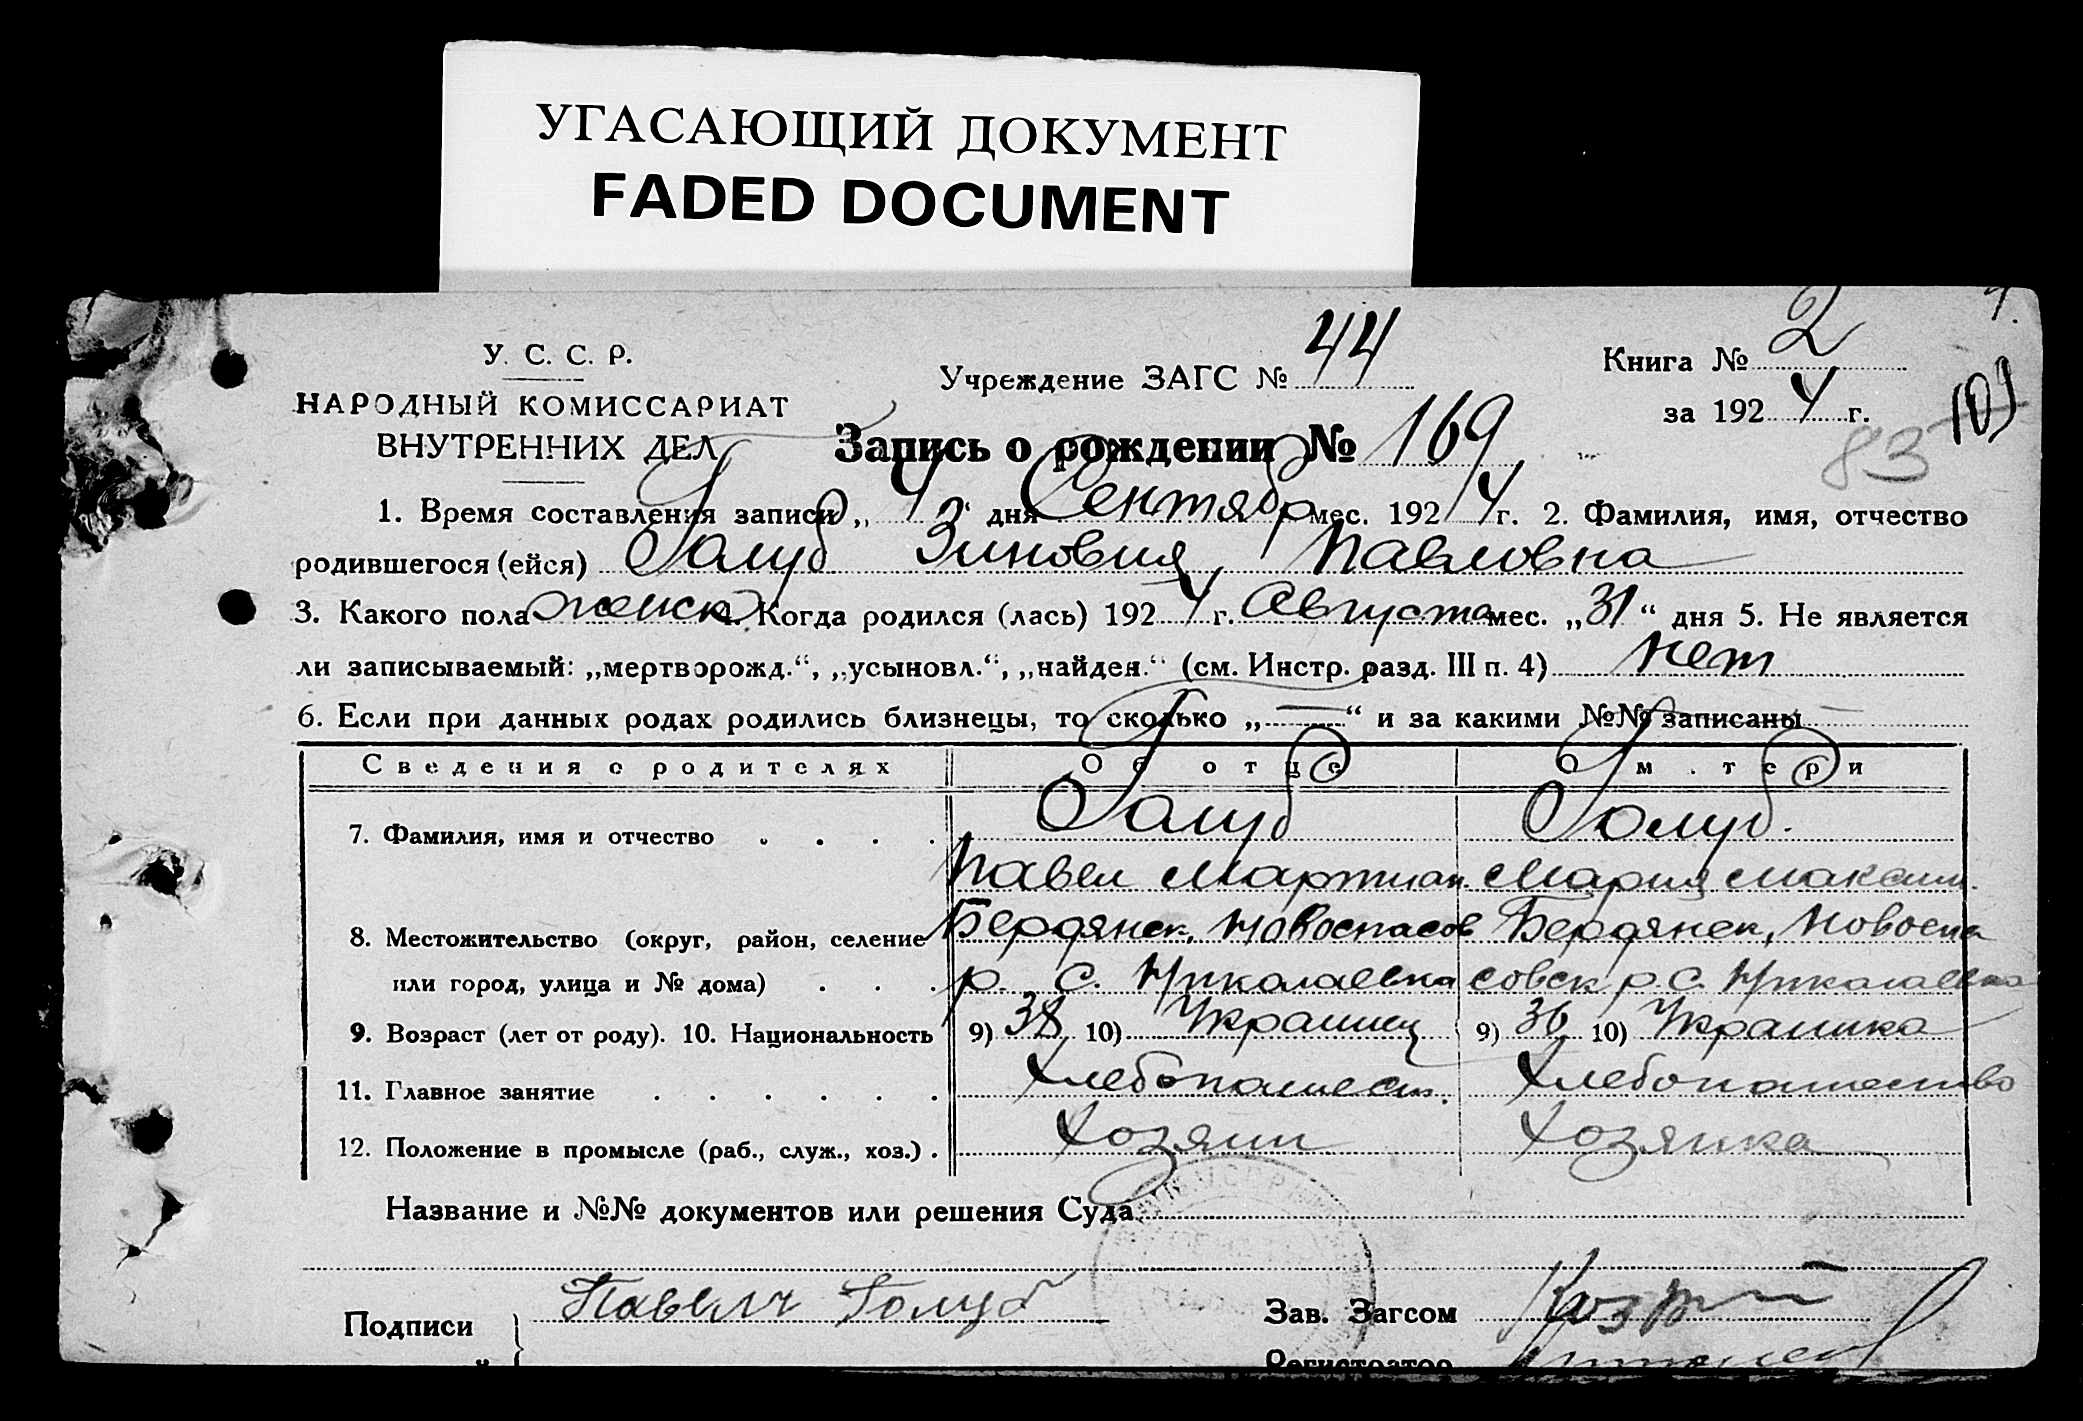 УГАСАЮЩИЙ ДОКУМЕНТ
FADED DOCUMENT
У. С. С. Р.
НАРОДНЫЙ КОМИССАРИАТ
ВНУТРЕННИХ ДЕЛ
Учреждение ЗАГС № 44
Книга № 2
за 1924 г.
83
Запись о рождении № 169
1. Время составления записи „ 4 “ дня Сентябр мес. 1924 г. 2. Фамилия, имя, отчество
родившегося (ейся) Голуб Зиновия Павловна
3. Какого пола женск 4. Когда родился (лась) 1924 г. Августа мес. „31“ дня 5. Не является
ли записываемый: „мертворожд.“, „усыновл.“, „найден.“ (см. Инстр. разд. III п. 4) нет
6. Если при данных родах родились близнецы, то сколько „ — “ и за какими №№ записаны —
Сведения о родителях Об отце О матери
7. Фамилия, имя и отчество . . . . Голуб Голуб.
Павел Мартиан. Мария Максим.
8. Местожительство (округ, район, селение Бердянск, Новоспасов Бердянск, Новоспа
или город, улица и № дома) . . . р. С. Николаевка совск р. С. Николаевка
9. Возраст (лет от роду). 10. Национальность 9) 38 10) Украинец 9) 36 10) Украинка
11. Главное занятие . . . . . . Хлебопашест. Хлебопашество
12. Положение в промысле (раб., служ., хоз.) . Хозяин Хозяйка
Название и №№ документов или решения Суда
Подписи Павель Голуб Зав. Загсом
Регистратор